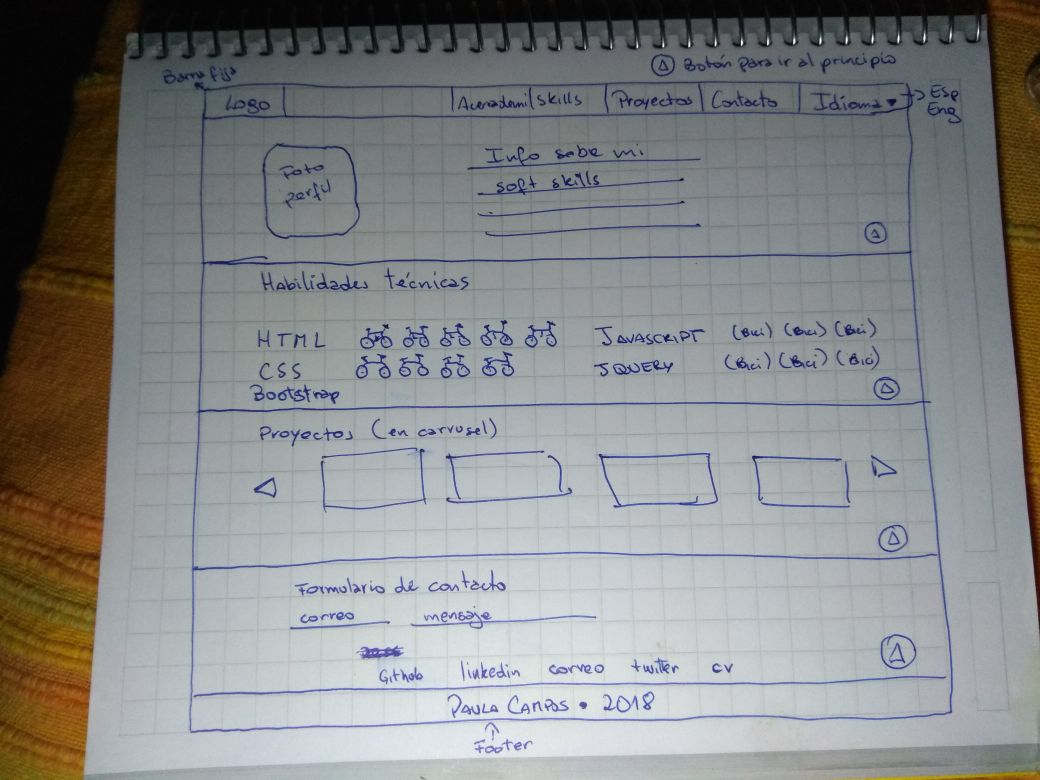 Barra fija
Botón para ir al principio
Logo Acercademi skills Proyectos Contacto Idioma
Esp
Eng
Foto
perfil
Info sobe mi
soft skills
Habilidades técnicas
HTML JAVASCRIPT (Bici) (Bici) (Bici)
CSS JQUERY (Bici) (Bici) (Bici)
Bootstrap
Proyectos (en carrusel)
Formulario de contacto
correo mensaje
Github linkedin correo twitter cv
PAULA CAMPOS • 2018
Footer